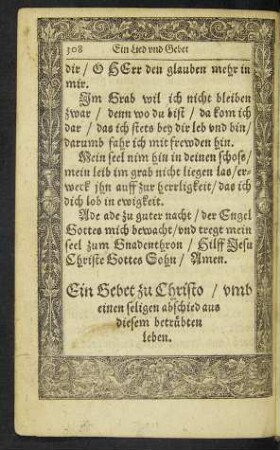 308 Ein Lied vnd Gebet
dir / O HErr den glauben mehr in
mir.
Im Grab wil ich nicht bleiben
zwar / denn wo du bist / da kom ich
dar / das ich stets bey dir leb vnd bin /
darumb fahr ich mit frewden hin.
Mein seel nim hin in deinen schoss /
mein leib im grab nicht liegen las / er-
weck jhn auff zur herrligkeit / das ich
dich lob in ewigkeit.
Ade ade zu guter nacht / der Engel
Gottes mich bewacht / vnd tregt mein
seel zum Gnadenthron / Hilff Jesu
Christe Gottes Sohn / Amen.
Ein Gebet zu Christo / vmb
einen seligen abschied aus
diesem betrübten
leben.